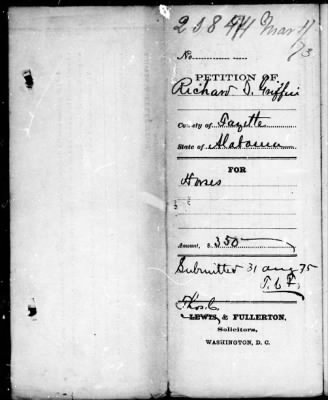 21844 Mar 11/73
No.
PETITION OF
Richard D. Griffin
County of Fayette
State of Alabama
FOR
Horses
Amount, $ 350
Submitted 31 aug 75
T. C. F.
Thos. C.
LEWIS & FULLERTON,
Solicitors,
WASHINGTON, D. C.